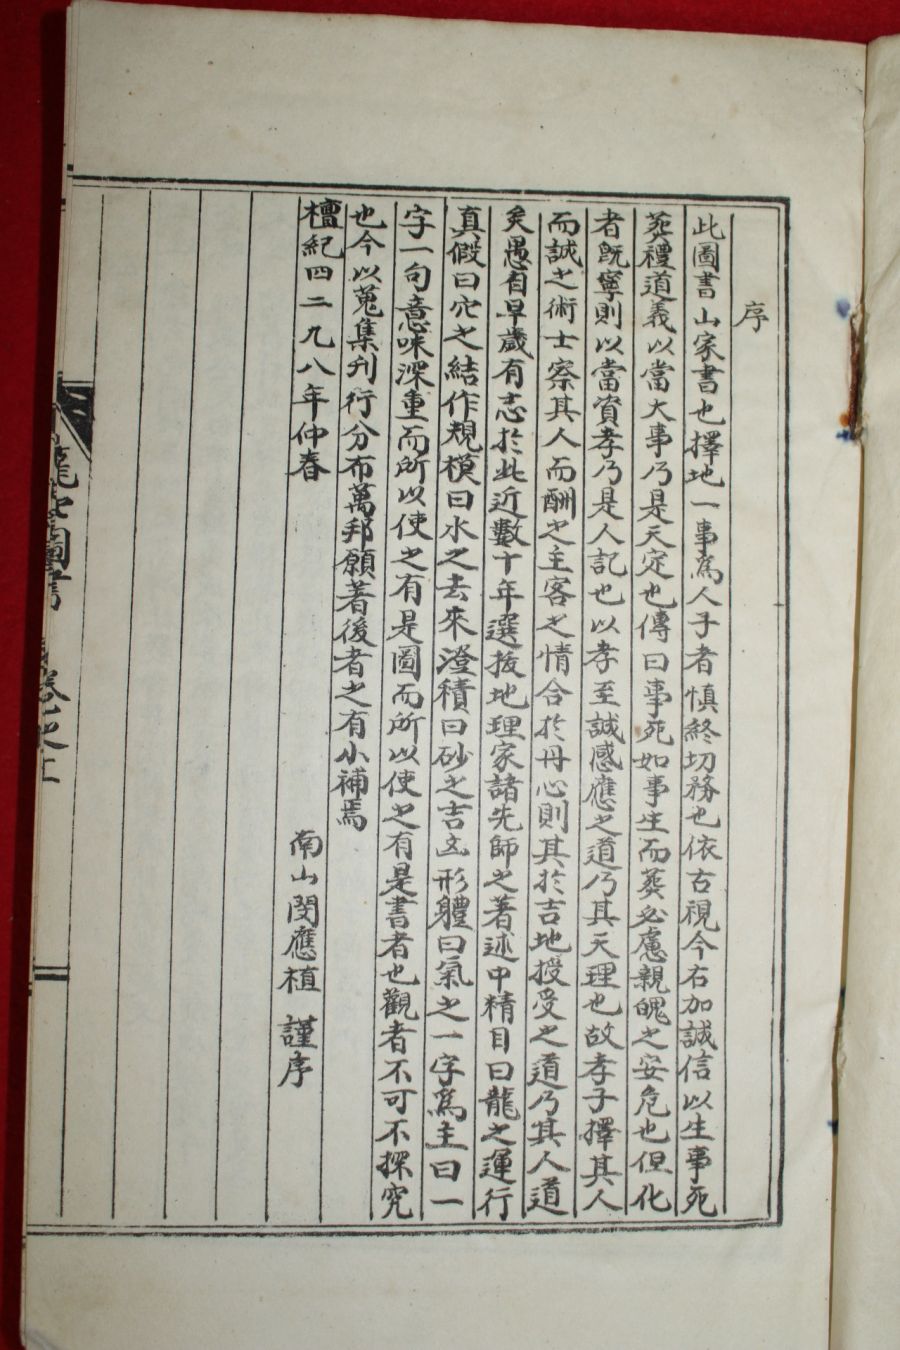 序
此圖書山家書也擇地一事爲人子者慎終切務也依古視今右加誠信以生事死
葬禮道義以當大事乃是天定也傳曰事死如事生而葬必慮親魄之安危也但化
者旣寧則以當資孝乃是人記也以孝至誠感應之道乃其天理也故孝子擇其人
而誠之術士察其人而酬之主客之情合於丹心則其於吉地授受之道乃其人道
矣愚自早歲有志於此近數十年選拔地理家諸先師之著述中精目曰龍之運行
真假曰穴之結作規模曰水之去來澄積曰砂之吉凶形軆曰氣之一字爲主曰一
字一句意味深重而所以使之有是圖而所以使之有是書者也觀者不可不探究
也今以蒐集刋行分布萬邦願著後者之有小補焉
檀紀四二九八年仲春
南山閔應植 謹序
龍
圖書
卷之上